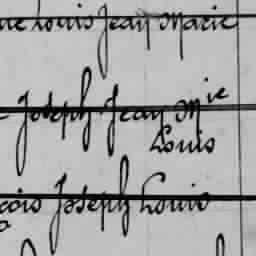 Louis Jean Marie
Joseph Jean Mie
Louis
Joseph Louis